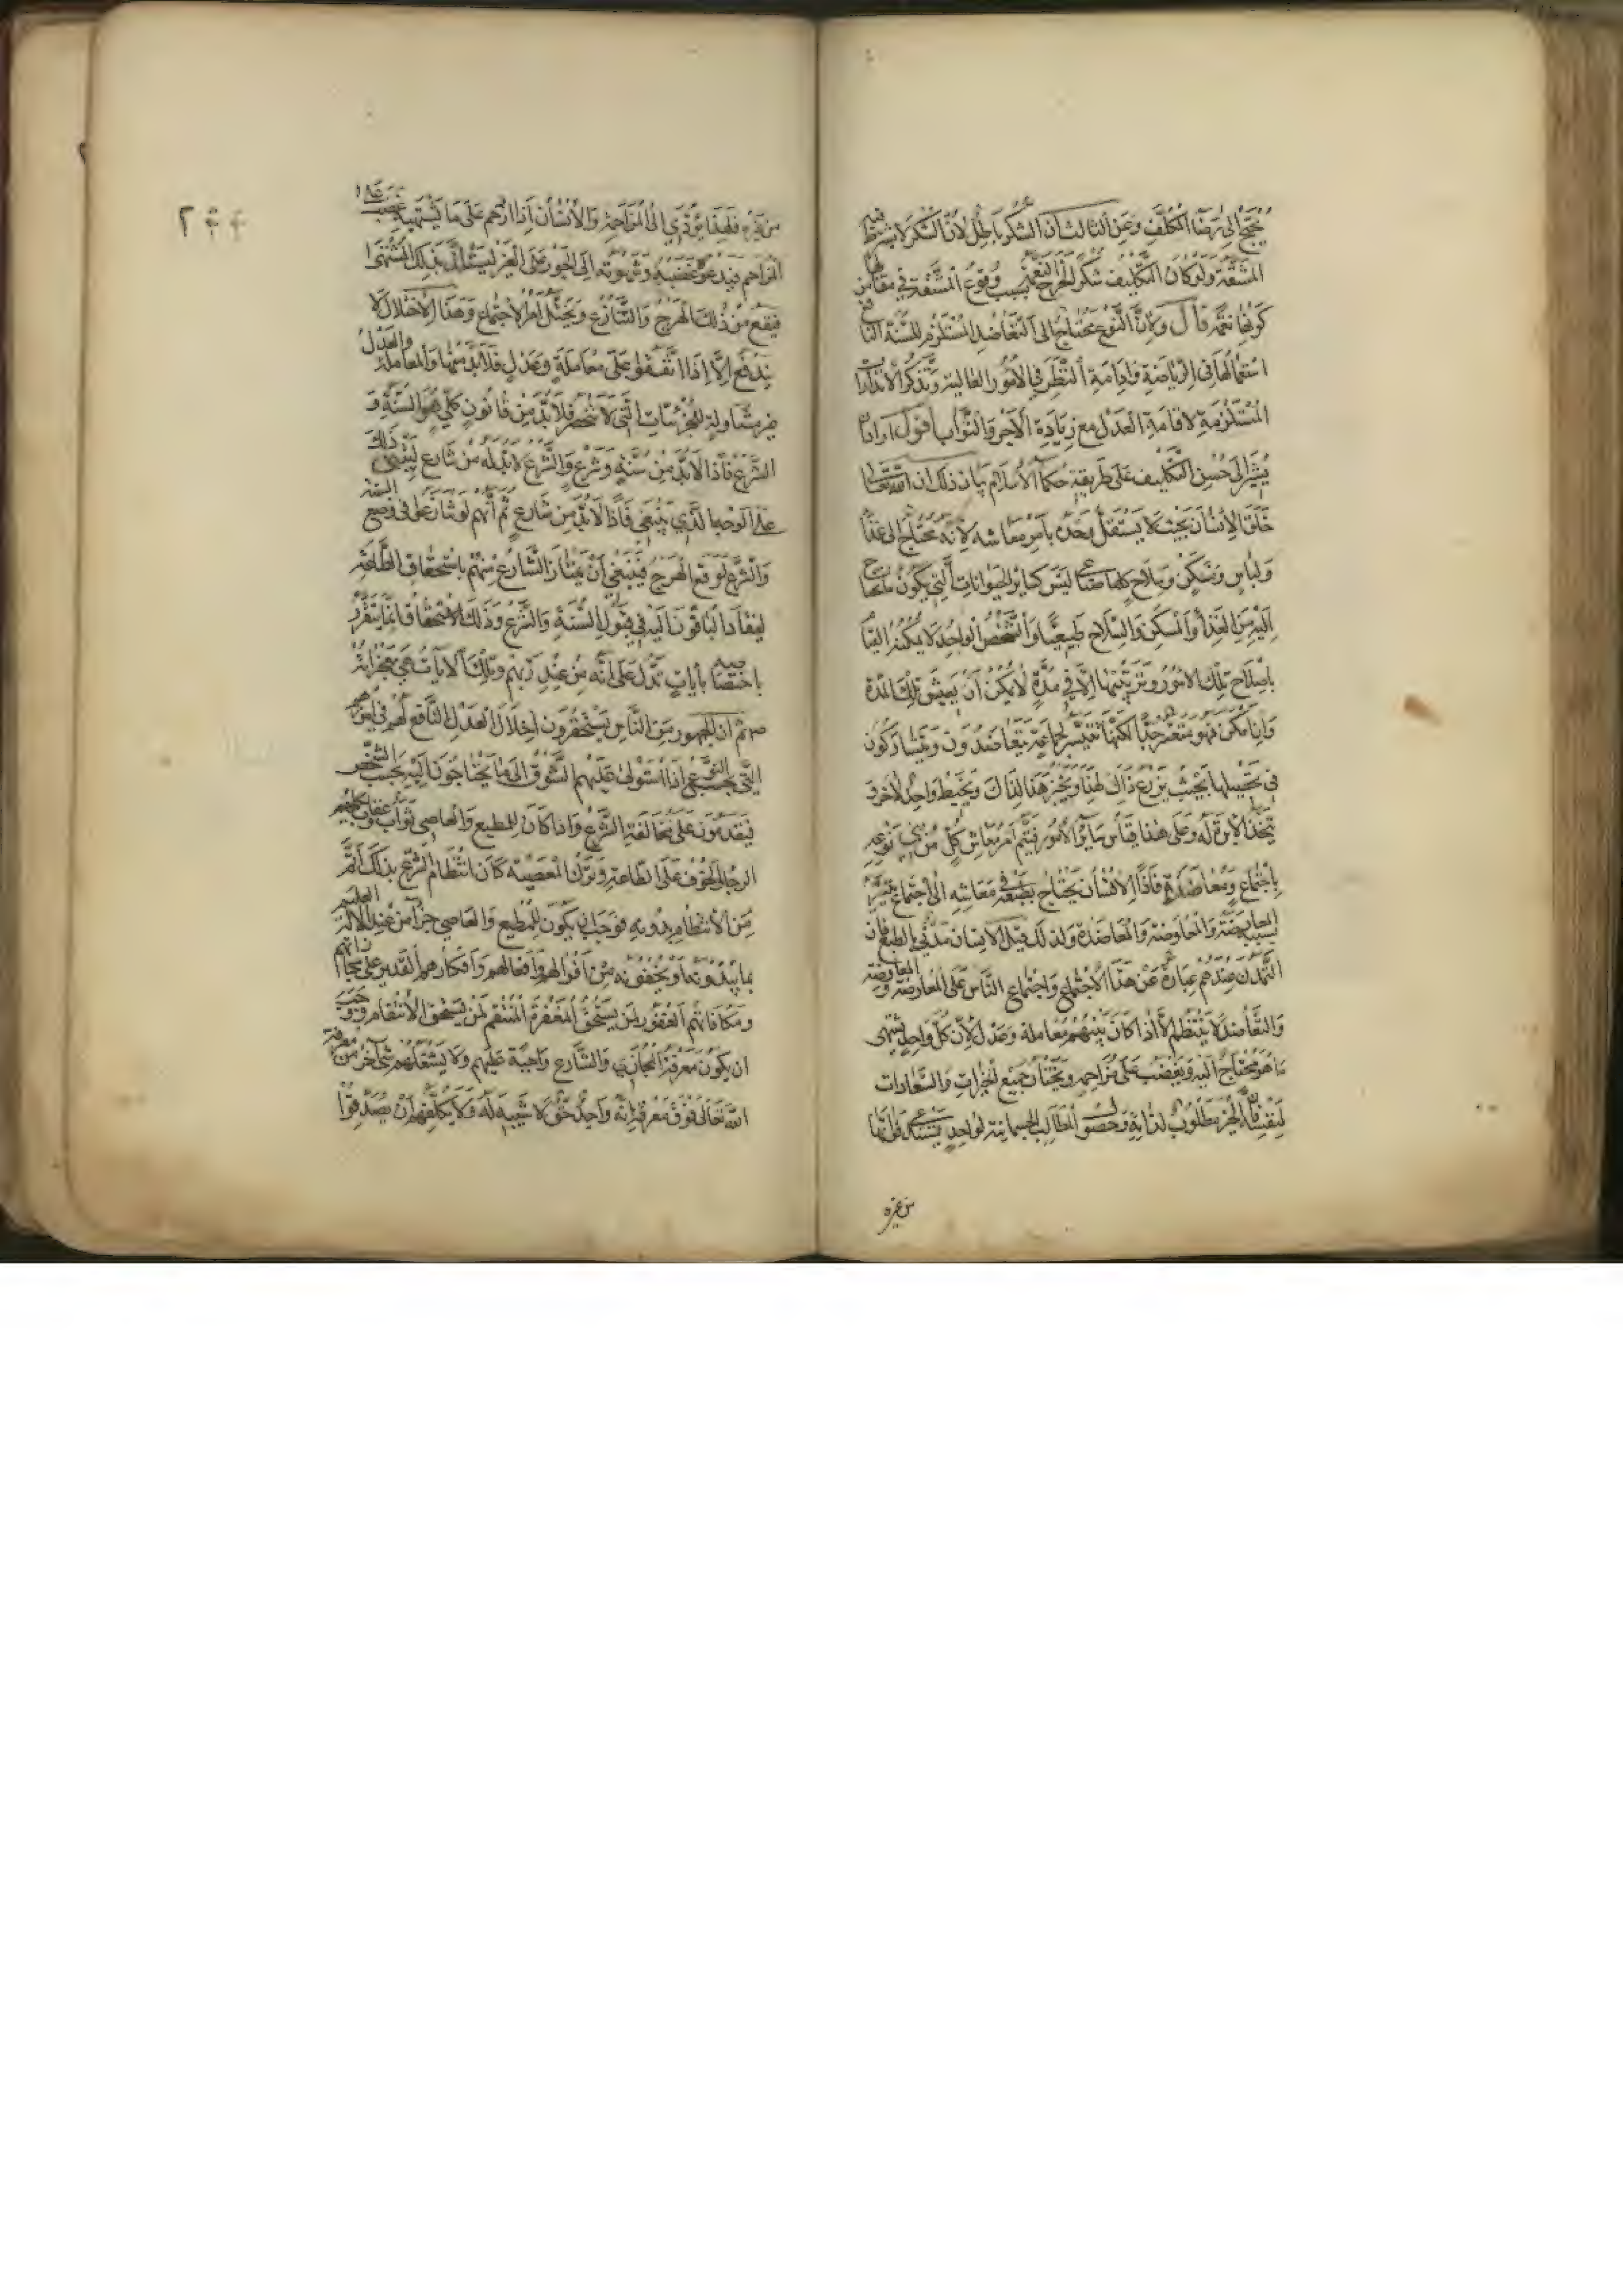 يحتج الى رضا المكلف وعن الثالث ان الشكر باطل لان الشكر لا يشترط فيه
المشقة ولو كان التكليف شكرا لخرج النعمة بسبب وقوع المشقة في مقابلتها من
كونها نعمة قال ولان النوع محتاج الى التعاضد المستلزم للسنة النافع
استعمالها في الرياضة وادامة النظر في الامور العالية وتذكر الانذارات
المستلزمة لاقامة العدل مع زيادة الاجر والثواب اقول اراد ان
يشير الى حسن التكليف على طريقة حكماء الاسلام بيان ذلك ان الله تعالى
خلق الانسان بحيث لا يستقل وحده بامر معاشه لانه محتاج الى غذاء
ولباس ومسكن وسلاح كلها صناعي ليس كسائر الحيوانات التي يكون ما يحتاج
اليه من الغذاء والمسكن والسلاح طبيعيا والشخص الواحد لا يمكنه القيام
باصلاح تلك الامور وترتيبها الا في مدة لا يمكن ان يعيش تلك المدة
وان امكن فهو متعسر جدا لكنها تتيسر لجماعة يتعاضدون ويتشاركون
في تحصيلها بحيث يزرع ذاك لهذا ويخبز هذا لذاك ويخيط واحد لاخر و
يتخذ الابرة له وعلى هذا قياس سائر الامور فيتم امر معاش كل من بني نوعه
باجتماع ومعاضدة فاذا الانسان يحتاج بطبعه في معاشه الى اجتماع
بسبب المعارضة والمعاوضة والمعاضدة ولذلك قيل الانسان مدني بالطبع فان
التمدن عندهم عبارة عن هذا الاجتماع واجتماع الناس على المعاوضة
والتعاضد لا ينتظم الا اذا كان بينهم معاملة وعدل لان كل واحد يشتهي
ما هو محتاج اليه ويغضب على مزاحمه ويختار جميع الخيرات والسعادات
لنفسه فان الخير مطلوب لذاته وحصول المطالب الجسمانية لواحد يستدعي فواتها
من غيره
من غيره فلهذا يؤدي الى المزاحمة والانسان اذا ازدحم على ما يشتهيه غضب على
المزاحم فيدعوه غضبه وشهوته الى الجور على الغير ليستبد بذلك المشتهى
فيقع من ذلك الهرج والتنازع ويختل امر الاجتماع وهذا الاختلال لا
يندفع الا اذا اتفقوا على معاملة وعدل فلابد منها والمعاملة والعدل
غير متناولة للجزئيات التي لا تنحصر فلابد من قانون كلي هو السنة و
الشرع فاذا لابد من سنة وشرع والشرع لابد له من شارع ليسن ذلك
على الوجه الذي ينبغي فاذا لابد من شارع ثم انهم لو تنازعوا في وضع السنة
والشرع لوقع الهرج فينبغي ان يمتاز الشارع منهم باستحقاق الطاعة
لينقاد الباقون اليه في قبول السنة والشرع وذلك الاستحقاق انما يتقرر
باختصاصه بايات تدل على انه من عند ربهم وتلك الايات هي معجزاته
ثم ان الجمهور من الناس يستحقرون اختلال العدل النافع لهم في امور
التي بحسب النوع اذا استولى عليهم الشوق الى ما يحتاجون اليه بحسب الشخص
فيقدمون على مخالفة الشرع واذا كان للمطيع والعاصي ثواب وعقاب
الرجا والخوف على الطاعة وترك المعصية كان انتظام الشرع بذلك اتم
من الانتظام بدونه فوجب ان يكون للمطيع والعاصي جزاء من عند الاله العليم
بما يبدونه او يخفونه من اقوالهم وافعالهم وافكارهم القدير على مجازاتهم
ومكافاتهم الغفور لمن يستحق المغفرة المنتقم لمن يستحق الانتقام ووجب
ان يكون معرفة المجازي والشارع واجبة عليهم ولا يشغلهم شي اخر من معرفة
الله تعالى فوق معرفة انه واحد حق لا شبيه له ولا يكلفهم ان يصدقوا